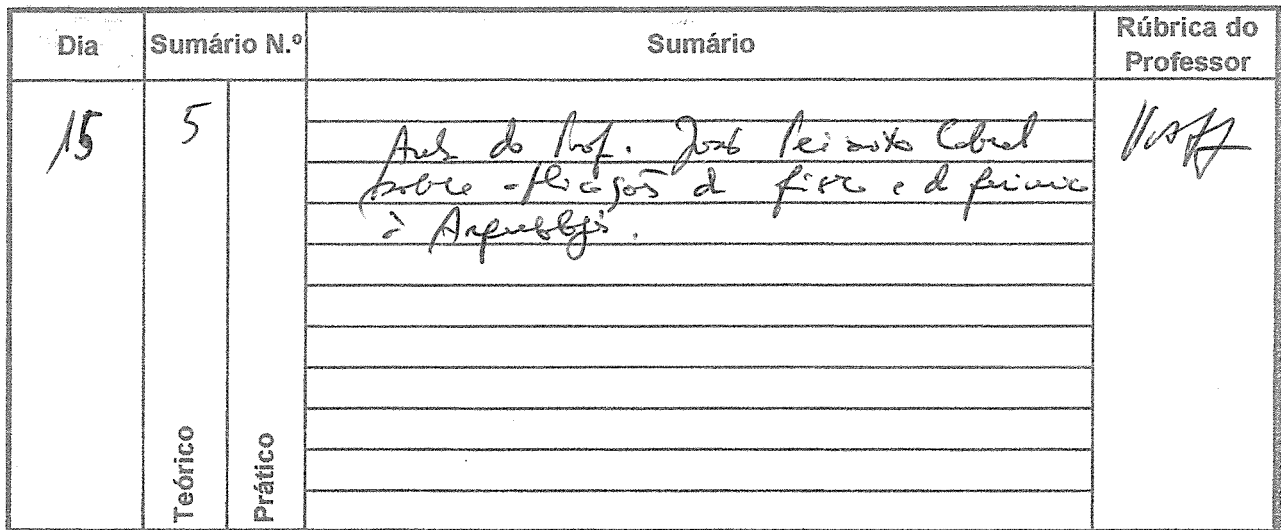 Dia Sumário N.º Sumário Rúbrica do Professor
15 5
Aula do Prof. José Peixoto Cabral
sobre aplicações da física e da química
à Arqueologia.
Teórico Prático